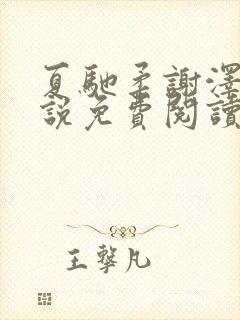 夏馳柔謝澤
說免費閱讀
王擊凡